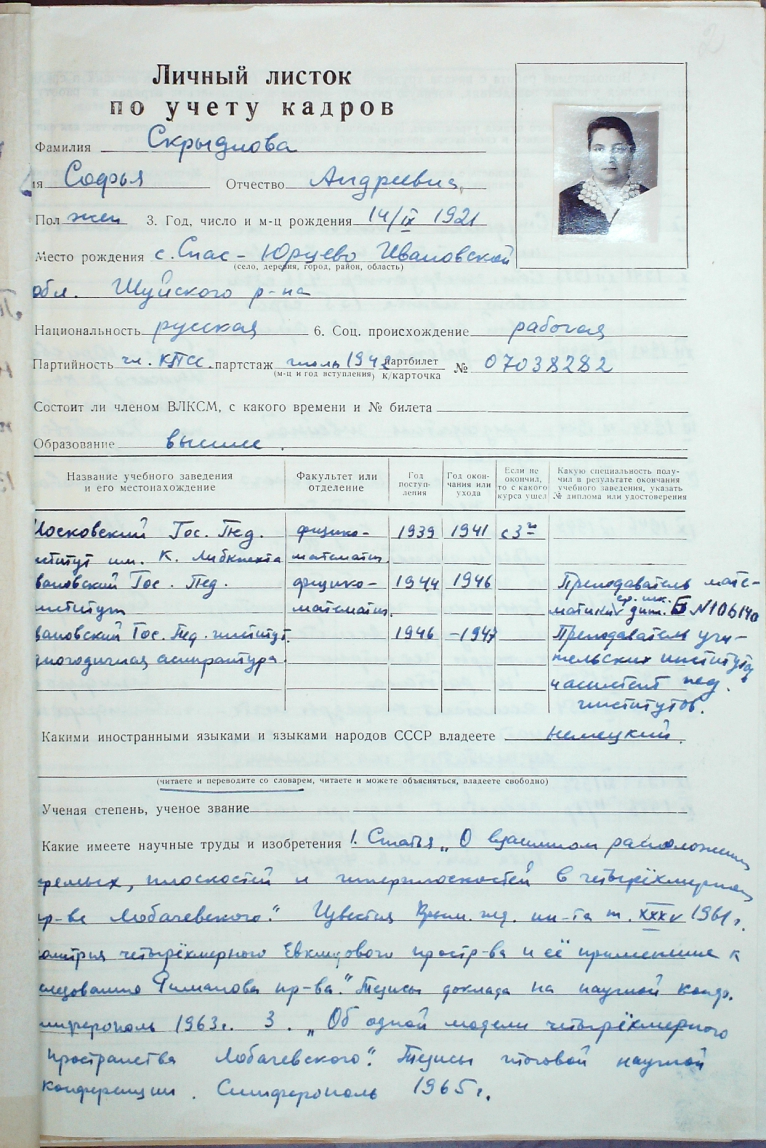 2
Личный листок
по учету кадров
Фамилия Скрыдлова
мя Софья Отчество Андреевна
Пол жен 3. Год, число и м-ц рождения 14/IX 1921
Место рождения с. Спас-Юрцево Ивановской
(село, деревня, город, район, область)
обл. Шуйского р-на
Национальность русская 6. Соц. происхождение рабочая
Партийность чл. КПСС. партстаж 1942 партбилет № 07038282
(м-ц и год вступления) к/карточка
Состоит ли членом ВЛКСМ, с какого времени и № билета
Образование высшее.
Название учебного заведения и его местонахождение
Факультет или отделение
Год поступ-ления
Год окон-чания или ухода
Если не окончил, то с какого курса ушел
Какую специальность полу-чил в результате окончания учебного заведения, указать № диплома или удостоверения
Московский Гос. Пед. физико- 1939 1941 с 3го
нститут им. К. Либкнехта математич.
вановский Гос. Пед. физико- 1944 1946 Преподаватель мате-
нститут математич. матики ср. шк. дип. Б №106140
вановский Гос. Пед. институт. 1946 -1947 Преподаватель учи-
дногодичная аспирантура. тельских институтов
и ассистент пед.
институтов.
Какими иностранными языками и языками народов СССР владеете немецкий.
(читаете и переводите со словарем, читаете и можете объясняться, владеете свободно)
Ученая степень, ученое звание
Какие имеете научные труды и изобретения 1. Статья „О взаимном расположении
прямых, плоскостей и гиперплоскостей в четырёхмерном
пр-ве Лобачевского". Известия Крым. пед. ин-та т. XXXV 1961г.
ометрия четырёхмерного Евклидова простр-ва и её применение к
следованию Риманова пр-ва." Тезисы доклада на научной конф.
имферополь 1963г. 3. „Об одной модели четырёхмерного
пространства Лобачевского". Тезисы итоговой научной
конференции. Симферополь 1965г.